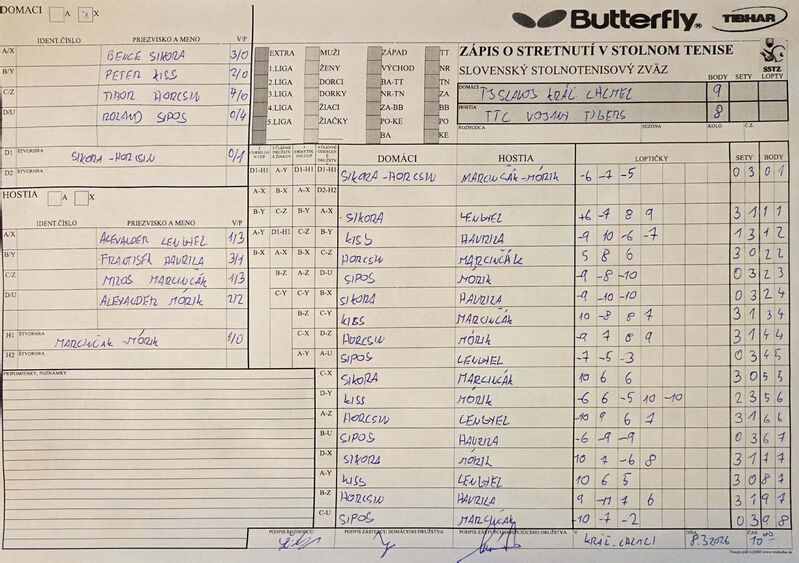 DOMÁCI A X X
Butterfly TIBHAR
IDENT.ČÍSLO PRIEZVISKO A MENO V/P
A/X BENCE SIKORA 3/0
B/Y PETER KISS 2/0
C/Z TIBOR HORCSIN 4/0
D/U ROLAND SIPOS 0/4
D1 ŠTVORHRA SIKORA - HORCSIN 0/1
D2
EXTRA MUŽI ZÁPAD TT
1.LIGA ŽENY VÝCHOD NR
2.LIGA DORCI BA-TT TN
3.LIGA DORKY NR-TN ZA
4.LIGA ŽIACI ZA-BB BB
5.LIGA ŽIAČKY PO-KE PO
BA KE
ZÁPIS O STRETNUTÍ V STOLNOM TENISE
SLOVENSKÝ STOLNOTENISOVÝ ZVÄZ
SSTZ
BODY SETY LOPTY
DOMÁCI KRÁĽ. CHLMEC 9
HOSTIA TTC VOJANY TIGERS 8
ROZHODCA SEZÓNA KOLO Č.Z.
HOSTIA A X
IDENT.ČÍSLO PRIEZVISKO A MENO V/P
A/X ALEXANDER LENGYEL 1/3
B/Y FRANTIŠEK HAVRILA 3/1
C/Z MILOŠ MARCINČÁK 1/3
D/U ALEXANDER MÓRIK 2/2
H1 ŠTVORHRA MARCINČÁK - MÓRIK 1/0
H2 ŠTVORHRA
PRIPOMIENKY, POZNÁMKY
DOMÁCI HOSTIA LOPTIČKY SETY BODY
D1-H1 A-Y D1-H1 D1-H1 SIKORA - HORCSIN MARCINČÁK - MÓRIK -6 -7 -5 0 3 0 1
A-X B-X A-X D2-H2
B-Y C-Z B-Y A-X SIKORA LENGYEL +6 -7 8 9 3 1 1 1
A-Y D1-H1 C-Z B-Y KISS HAVRILA -9 10 -6 -7 1 3 1 2
B-X A-X B-X C-Z HORCSIN MARCINČÁK 5 8 6 3 0 2 2
B-Z A-Z D-U SIPOS MÓRIK -9 -8 -10 0 3 2 3
C-Y C-Y B-X SIKORA HAVRILA -9 -10 -10 0 3 2 4
B-Z C-Y KISS MARCINČÁK 10 -8 8 7 3 1 3 4
C-X D-Z HORCSIN MÓRIK -9 7 8 9 3 1 4 4
A-Y A-U SIPOS LENGYEL -7 -5 -3 0 3 4 5
C-X SIKORA MARCINČÁK 10 6 6 3 0 5 5
D-Y KISS MÓRIK -6 6 -5 10 -10 2 3 5 6
A-Z HORCSIN LENGYEL -10 9 6 7 3 1 6 6
B-U SIPOS HAVRILA -6 -9 -9 0 3 6 7
D-X SIKORA MÓRIK 10 7 -6 8 3 1 7 7
A-Y KISS LENGYEL 10 6 5 3 0 8 7
B-Z HORCSIN HAVRILA 9 -11 7 6 3 1 9 7
C-U SIPOS MARCINČÁK -10 -7 -2 0 3 9 8
PODPIS ROZHODCU PODPIS ZÁSTUPCU DOMÁCEHO DRUŽSTVA V KRÁĽ. CHLMCI DŇA 8.3.2026 ČAS 10 00